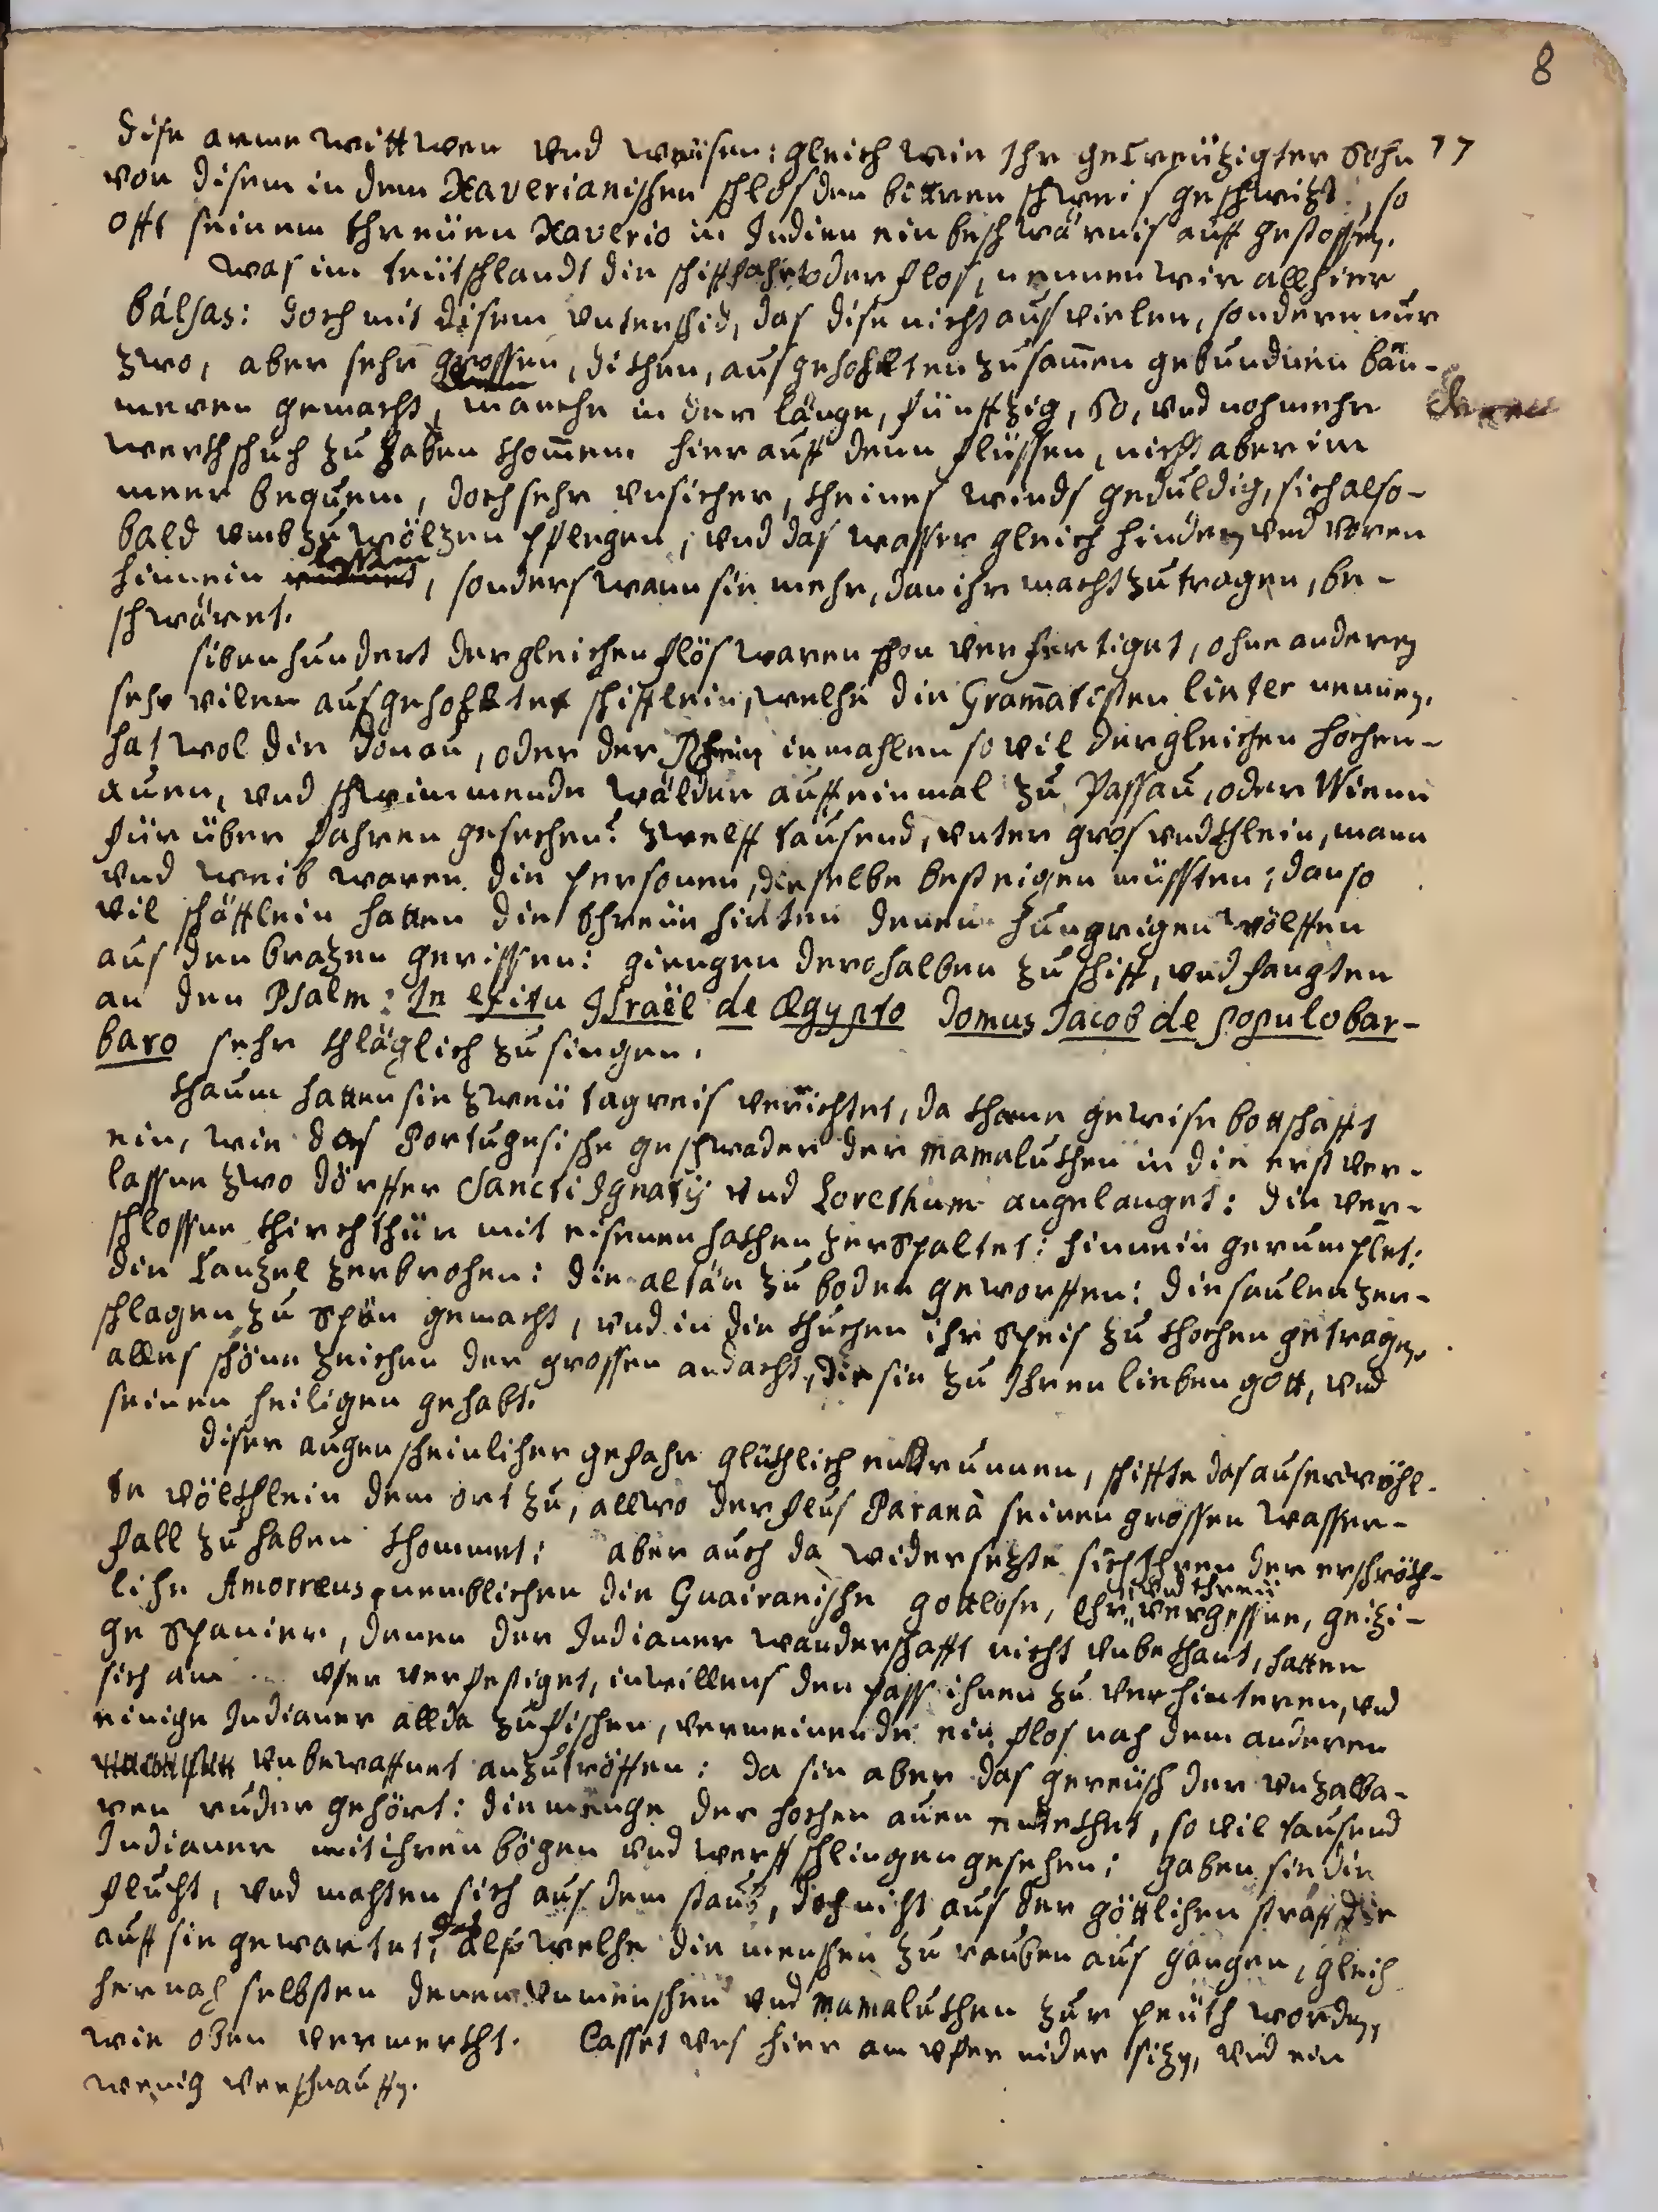 8
dise arme wittwen vnd weüsen: gleich wie Ihr gecreützigter Sohn 17
von disem in dem Xaverianischen schlos den bittren schweis geschwizt, so
offt seinem threüen Xaverio in Indien ein beschwärnis auff gestossen.
Was im teütschlandt die schiffahrt oder flos, nennen wir allhier
bálsas: doch mit disem vnterschid, das dise nicht aus vielen, sonderen nur
zwo, aber sehr grossen, dikhen, ausgehohlten zusam̄en gebundnen bäu-
meren gemacht, manche in der länge, fünffzig, 60, vnd noh mehr
werchschuch zu haben thom̄en. hier auff denen flüssen, nicht aber im
meer bequem, doch sehr vnsicher, kheines winds geduldig, sich also-
bald vmb zu wölzen pflegen, vnd das wasser gleich hinden vnd voren
hinnein lassen, sonders wann sie mehr, dan ihr macht zu tragen, be-
schwäret.
sibenhundert dergleichen flös waren schon verfertiget, ohne anderen
sehr vilen ausgehohlten schifflein, welhe die Gram̄atisten linter nennen.
hat wol die Donau, oder der Rhein iemahlen so vil dergleichen hochen-
auen, vnd schwimmende wälder auff einmal zu Passau, oder Wienn
für über fahren gesechen? zwelff tausend, vnter gros vnd khlein, mann
vnd weib waren die personen, die selbe besteigen müssten; dan so
vil schäfflein hatten die threüe hirten denen hungrigen wölffen
aus den brazen gerissen: giengen derohalben zu schiff, vnd fangten
an den Psalm: In exitu Israël de Ægypto Domus Jacob de populo bar-
baro sehr khläglich zu singen.
khaum hatten sie zweü tagreis verrichtet, da khame gewise bottschafft
ein, wie das Portugesische geschwader der mamalukhen in die erst ver-
lassne zwo dörffer Sancti Ignatij vnd Lorethum angelanget: die ver-
schlossne khirchthür mit eisenen hakhen zerspaltet: hinnein gerumplet:
die Canzel zerbrohen: die altär zu boden geworffen: die saulen zer-
schlagen, zu spän gemacht, vnd in die khuchen ihr speis zu khochen getragen.
alles schöne zeichen der grossen andacht, die sie zu Ihren lieben gott, vnd
seinen heiligen gehabt.
diser augenscheinlicher gefahr glükhlich entrunnen, schiffte das auserwöhl-
te völkhlein dem ort zu, allwo der flus Paranà seinen grossen wasser-
fall zu haben khommet: aber auch da widersetzte sich Ihnen der erschrökh-
lihe Amorræus, nemblichen die Guairanische gottlose, Ehr vnd threü vergessne, geizi-
ge Spanier, denen der Indianer wanderschafft nicht vnbekhant, hatten
sich am vfer verfestiget, in willens den pass ihnen zu verhinteren, vnd
einige Indianer allda zu fischen, vermeinende ein flos nah dem anderen
vnbewaffnet anzutröffen: da sie aber das gereüsch der vnzalba-
ren ruder gehört: die menge der hochen auen entdekhet, so vil tausend
Indianer mit ihren bögen vnd werff schlingen gesehen; gaben sie die
flucht, vnd mahten sich aus dem staub, doch nicht aus der göttlihen straff die
auff sie gewartet; welhe die menshen zu rauben aus gangen, gleich
hernah selbsten denen vnmenschen vnd mamalukhen zur peüth worden,
wie oben vermerkht. Lasset vns hier am vfer nider sizen, vnd ein
wenig verschnauffen.